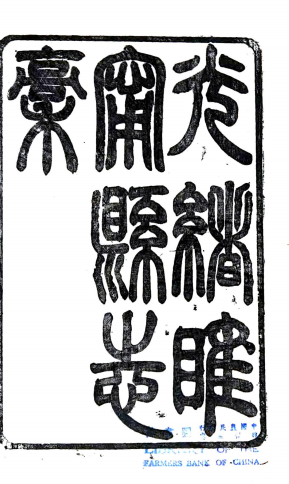 光緒睢
甯縣志
稾
LIBRARY OF THE
FARMERS BANK OF CHINA